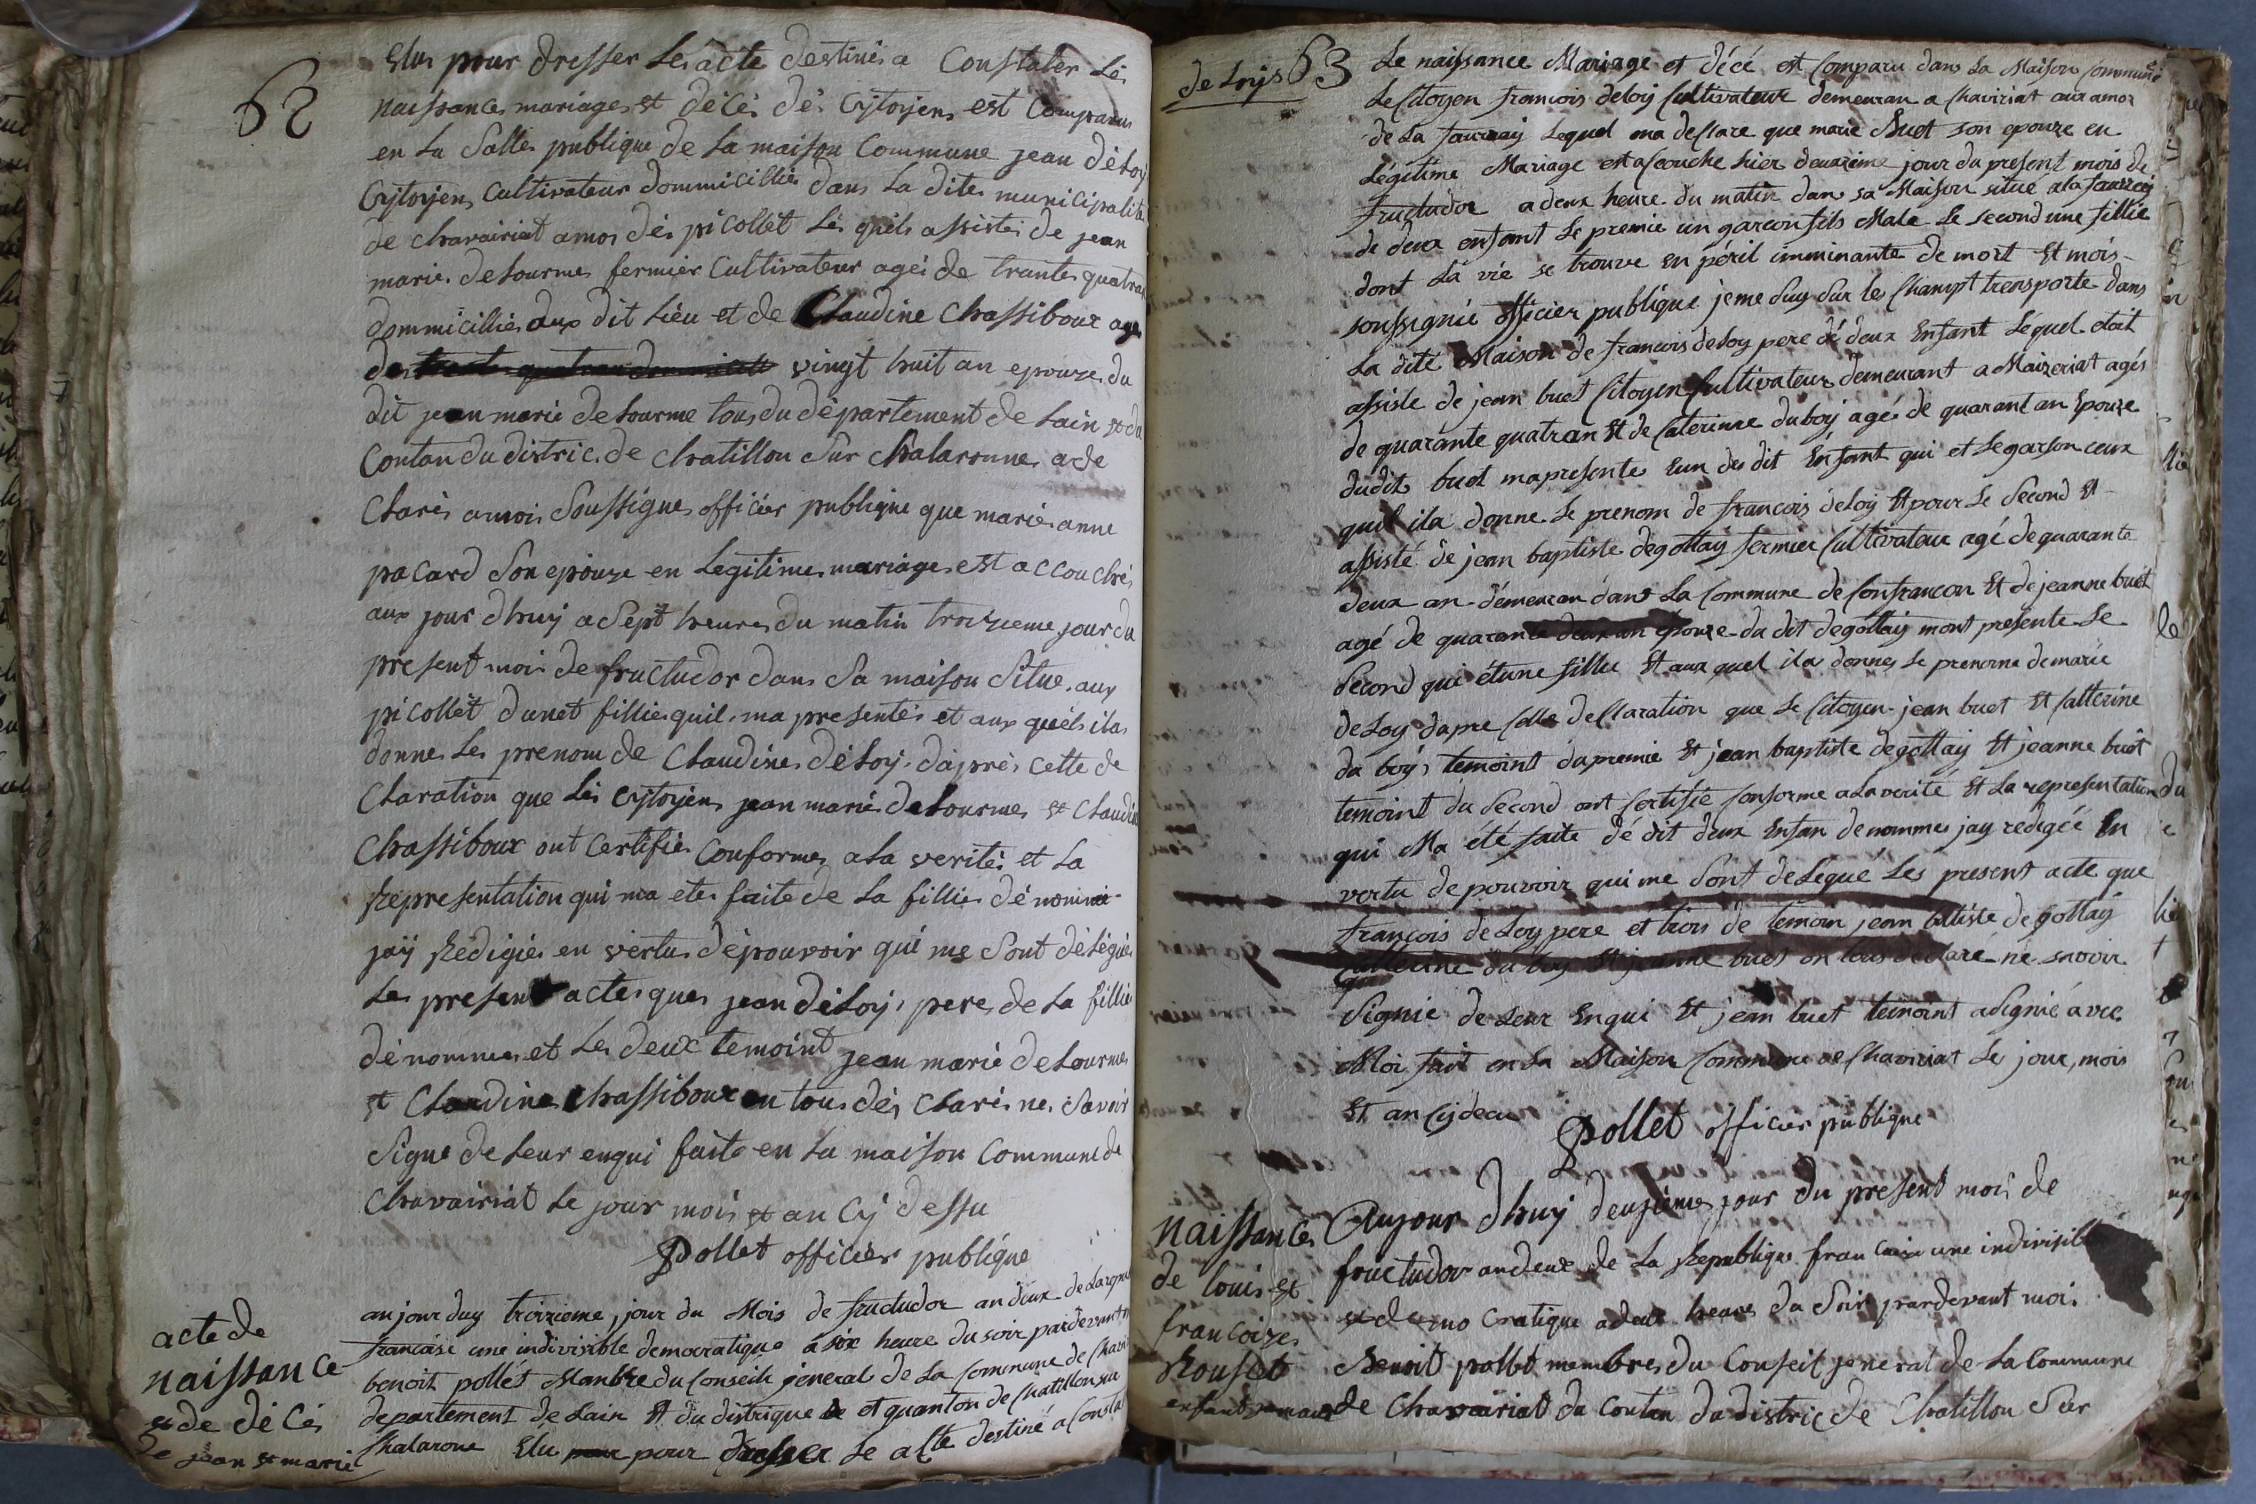 62
Elus pour dresser Les acte destinés a Constater Les
naissances mariages et décés dés Cytoyens est Comparus
en La Salles publique de La maison Commune jean déLoy
Cytoyens Cultivateur dommicilliés dans La dites municipalités
de chavairiat amos dés picollet Lés quéls assistés de jean
maries deLourmes fermier Cultivateur agés de trantes quatrar
dommicilliés aux dit Liéu et de Claudine Chassiboux agés
de vingt huit an epouze du
dit jean marie deLourme tous du département de Lain et du
Contan du distric de chatillon Sur Chalaronnes a de
Clarés a moi Soussignes officiér publique que maries anne
pacard Son epouze en Legitimes mariages est accouchés
aux jour dhuy a Sépt heures du matin troizieme jour du
present mois de fructudor dans Sa maison Situe aux
picollét dunet filliés quil ma presentés et aux quéls ila
donne Les prenom de Claudines déLoy daprés cette de
Claration que Lés Cytoyens jean maries deLourmes et Claudine
Chassiboux ont Certifiés Conformes a La verités et La
Representation qui ma etes faites de La filliés dénommé
jay Rédigiés en vértus dépouvoir qui me Sont délégués
Les present actes ques jean déLoy peres de La filliés
dénommés et Les deux temoint jean marie deLourmes
et Claudines Chassiboux on tous dés Clarés nes Savoir
Signe de Leur enqui faite en La maison Commune de
Chavairiat Le jour mois et an Cy dessu
Pollet officiér publique
acte de
naissance
et de décés
de jean et marie
aujour duy troizieme jour du Mois de fructudor an deux de Larepu
francaise une indivisible democratique a six heure du soir pardevant
benoit pollét Manbre du Conseile jéneral de La Commune de Chavai
departement de Lain Et du distrique de et quanton de Chatillon sur
Chalarone Elu pour dresser Le acte destiné a Consta
de Loys
63
Le naissance Mariage et décé est Comparu dans La Maison Commune
Le Citoyen francois deloy Cultivateur demeuran a Chaviriat aux amos
de La Lequel ma desclare que marie Buet son epouze en
Légitime Mariage est acouche hier deuxieme jour du present mois de
fructudor a deux heure du matin dans sa Maison situe a la
de deux enfant Le premie un garcon fils Male Le second une fillie
dont La vie se trouve En péril imminante de mort Et mois
soussignié officier publique je me Suy Sur les Champt transporte dans
La dite Maison de francois deloy pere dé deux Enfant Léquel etoit
assiste de jean buet Citoyen Cultivateur demeurant a Maizeriat agés
de quarante quatran Et de Caterinne duboy agé de quarant an Epouze
dudit buet mapresente Lun des dit Énfant qui et Le garson ceux
quil ila donne Le prenom de francois deLoy Et pour Le Second Et
assisté de jean baptiste degottay fermier Cultivateur agé de quarante
deux an demeuran dans La Commune de Confrancon Et de jeanne buét
agé de quarante deux an epouze du dit degottay mont présente Le
Second qui étune fillie Et aux quel ila donnes Le prenome de marie
deLoy dapre Celle desclaration que Le Citoyen jean buet Et Catterine
du boy temoint du premie Et jean baptiste degottay Et jeanne buét
temoint du Second ont Certifié Conforme a La verité Et La representation
qui Ma été faite dé dit deux Enfan denommes jay redigéé En
vertu de pouvoir qui me Sont deLegué Les present acte que
francois deLoy pere et trois de temoin jean batiste degottay
Catterine du boy Et jeanne buet on tous desclaré né savoir
Signie de Leur Enqui Et jean buet temoint a Signié avec
Moi fait en La Maison Commune de Chaviriat Le jour, mois
Et an Cydecu
Pollet officier publique
naissances
de louis et
francoizes
Rouset
enfant jumaux
Aujour dhuy deuzieme jour du present mois de
fructudor an deux de La Republique francaise une indivisible
et democratique a deux heures du Soir pardevant moi
Benoit pollet membres du Conseil jeneral de La Commune
de Chavairiat du Contan du distric de Chatillon Sur